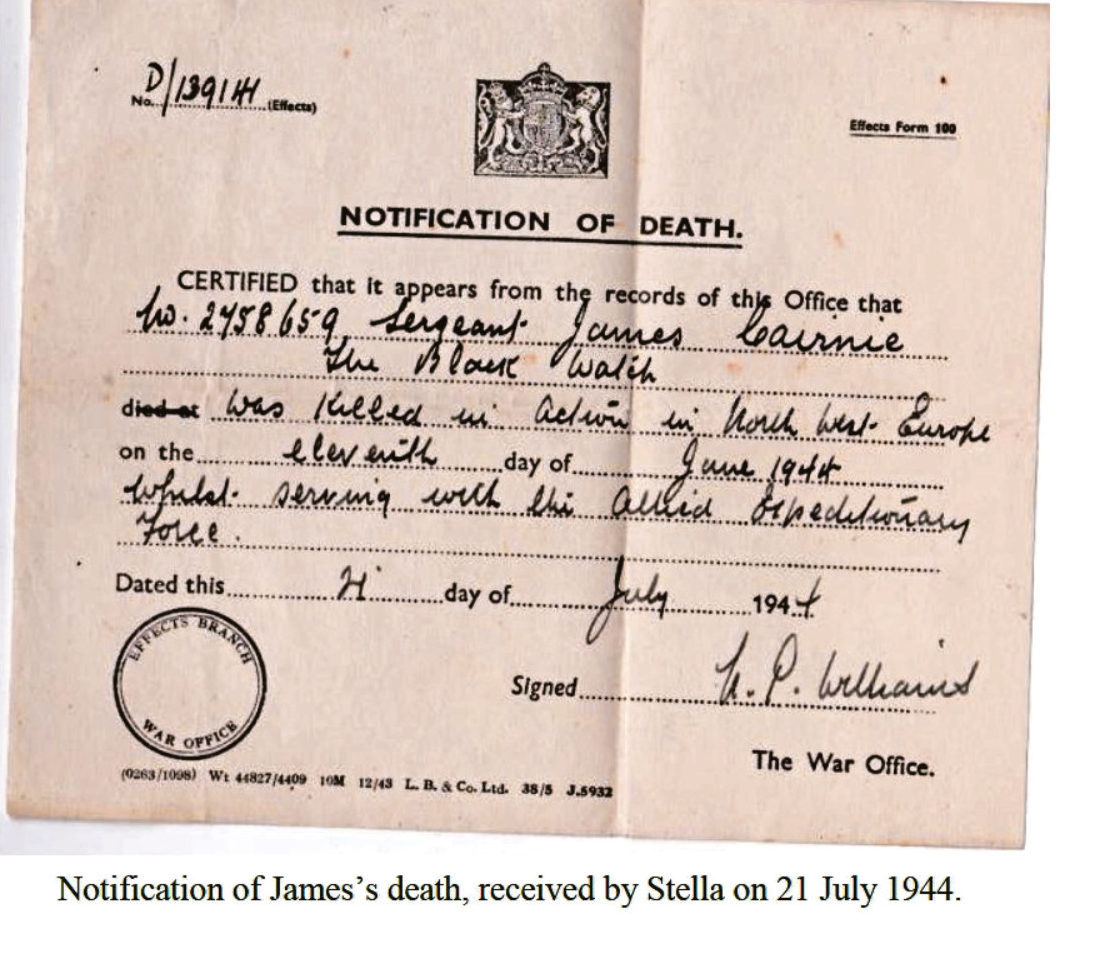 No. D/139144 (Effects)
Effects Form 100
NOTIFICATION OF DEATH.
CERTIFIED that it appears from the records of this Office that
No. 2758659 Sergeant James Cairnie
The Black Watch
died at was Killed in Action in North West Europe
on the eleventh day of June 1944
Whilst serving with the Allied Expeditionary
Force.
Dated this 21 day of July 1944
EFFECTS BRANCH
WAR OFFICE
Signed P. Williams
The War Office.
(0263/1098) Wt 44827/4409 10M 12/43 L. B. & Co. Ltd. 38/5 J.5932
Notification of James’s death, received by Stella on 21 July 1944.